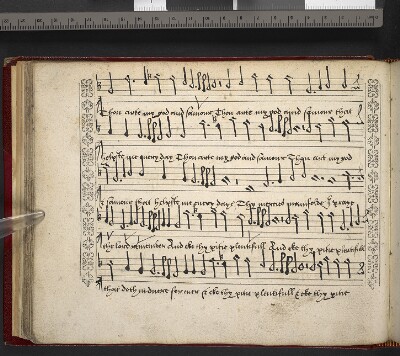 Thou arte my god and saviour Thou arte my god and saviour that
helpest me every day Thou arte my god and saviour Thou art my god
& saviour that helpest me every daye Thy mercies
lord remember And eke thy pitie plentifull And eke thy pitie plentifull
that doth endure for ever & eke thy pitie plentifull & eke thy pitie